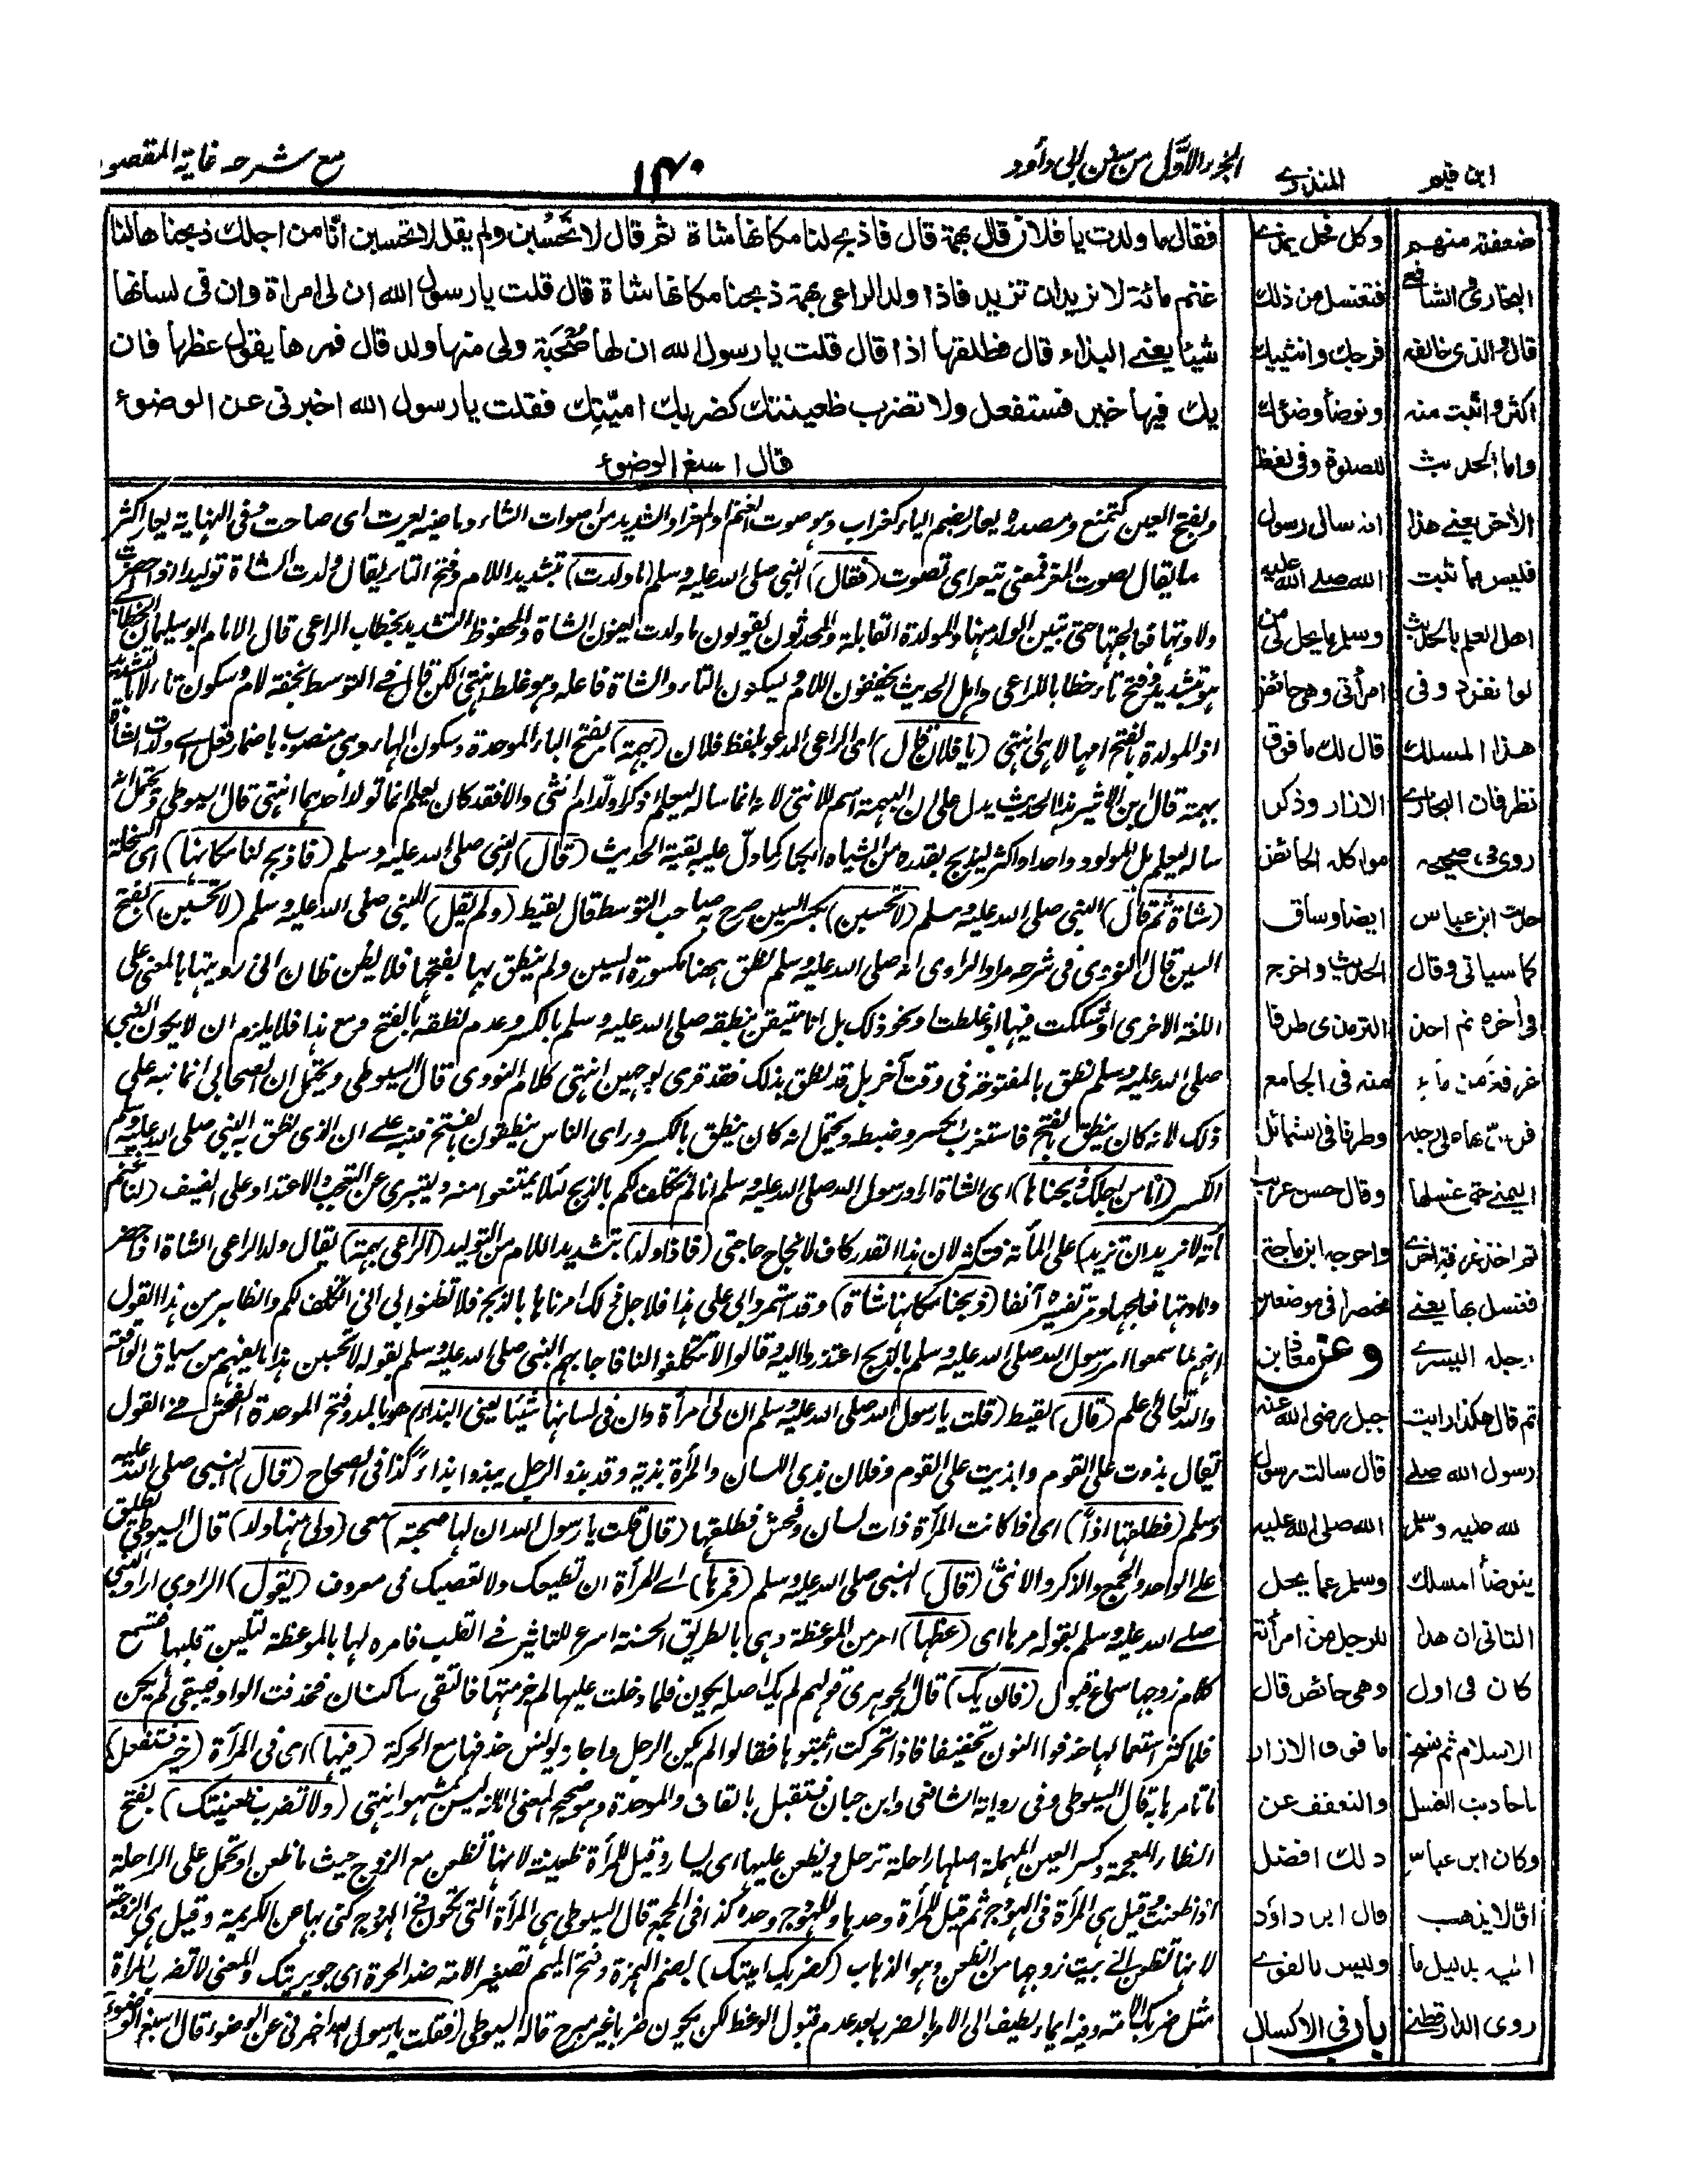 ابن قيم
المنذري
الجزء الاول من سنن ابى داود
١٤٠
مع شرحه غاية المقصود
فقال ما ولدت يا فلان قال بهمة قال فاذبح لنا مكانها شاة ثم قال لا تَحْسِبَن ولم يقل لا تحسبن انا من اجلك ذبحناها لنا
غنم مائة لا نريد ان تزيد فاذا ولد الراعى بهمة ذبحنا مكانها شاة قال قلت يا رسول الله ان لى امراة وان فى لسانها
شيئا يعنى البذاء قال فطلقها اذا قال قلت يا رسول الله ان لها صُحْبَة ولى منها ولد قال فمرها يقول عظها فان
يك فيها خير فستفعل ولا تضرب ظعينتك كضربك اميّتك فقلت يا رسول الله اخبرنى عن الوضوء
قال اسبغ الوضوء
وبفتح العين كتمنع ومصدره يعار بضم الياء كغراب وهو صوت الغنم او المعز او الشديد من اصوات الشاء وماضيه يعرت اى صاحت وفى النهاية يعار اكثر
ما يقال لصوت المعز فمعنى تيعر اى تصوت (فقال) النبى صلى الله عليه وسلم (ما ولدت) بتشديد اللام وفتح التاء يقال ولدت الشاة توليدا اذا حضرت
ولادتها فعالجتها حتى تبين الولد منها والمولدة القابلة والمحدثون يقولون ما ولدت يعنون الشاة والمحفوظ التشديد بخطاب الراعى قال الامام ابو سليمان الخطابى
هو بتشديد وفتح تاء خطابا للراعى واهل الحديث يخففون اللام ويسكنون التاء والشاة فاعله وهو غلط انتهى لكن قال فى التوسط بخفة لام وسكون تاء لا بالتشديد
اذ المولدة بالفتح امها لا هى انتهى (يا فلان قال) اى الراعى المدعو بلفظ فلان (بهمة) بفتح الباء الموحدة وسكون الهاء وهى منصوب باضمار فعل اى ولدت الشاة
بهمة قال ابن الاثير هذا الحديث يدل على ان البهمة اسم للانثى لانه انما ساله ليعلم اذكرا ولّد ام انثى والا فقد كان يعلم انما تولد احدهما انتهى قال السيوطى ويحتمل انه
ساله ليعلم هل المولود واحد او اكثر ليذبح بقدره من الشياه الكبار كما دل عليه بقية الحديث (قال) النبى صلى الله عليه وسلم (فاذبح لنا مكانها) اى السخلة
(شاة ثم قال) النبى صلى الله عليه وسلم (لا تحسبن) بكسر السين صرح به صاحب التوسط قال لقيط (ولم يقل) النبى صلى الله عليه وسلم (لا تحسبن) بفتح
السين قال النووى فى شرحه مراد الراوى انه صلى الله عليه وسلم نطق بها هنا مكسورة السين ولم ينطق بها بفتحها فلا يظن ظان انى رويتها بالمعنى على
اللغة الاخرى او شككت فيها او غلطت او نحو ذلك بل انا متيقن بنطقه صلى الله عليه وسلم بالكسر وعدم نطقه بالفتح ومع هذا فلا يلزم ان لا يكون النبى
صلى الله عليه وسلم نطق بالمفتوحة فى وقت آخر بل قد نطق بذلك فقد قرى بوجهين انتهى كلام النووى قال السيوطى ويحتمل ان الصحابى انما نبه على
ذلك لانه كان ينطق بالفتح فاستغرب الكسر وضبطه ويحتمل انه كان ينطق بالكسر وراى الناس ينطقون بالفتح فنبه على ان الذى نطق به النبى صلى الله عليه وسلم
الكسر (انا من اجلك ذبحناها) اى الشاة اراد رسول الله صلى الله عليه وسلم انا لم نتكلف لكم بالذبح لئلا يمتنعوا منه وليتبرى عن التعجب والاعتداد على الضيف (لنا غنم
مائة لا نريد ان تزيد) على المائة فتكثر لان هذا القدر كاف لانجاح حاجتى (فاذا ولد) بتشديد اللام من التوليد (الراعى بهمة) يقال ولد الراعى الشاة اذا حضر
ولادتها فعالجها ومر تفسيره آنفا (ذبحنا مكانها شاة) وقد استمر دابى على هذا فلاجل ذلك امرناها بالذبح فلا تظنوا بى انى اتكلف لكم والظاهر من هذا القول
انهم لما سمعوا امر رسول الله صلى الله عليه وسلم بالذبح اعتذروا اليه وقالوا لا تتكلفوا لنا فاجابهم النبى صلى الله عليه وسلم بقوله لا تحسبن هذا ما يفهم من سياق الواقعة
والله تعالى اعلم (قال) لقيط (قلت يا رسول الله صلى الله عليه وسلم ان لى امرأة وان فى لسانها شيئا يعنى البذاء) هو بالمد وفتح الموحدة الفحش فى القول
يقال بذوت على القوم وابذيت على القوم وفلان بذى اللسان والمرأة بذية وقد بذو الرجل يبذو بذاء كذا فى الصحاح (قال) النبى صلى الله عليه
وسلم (فطلقها اذا) اى اذا كانت المرأة ذات لسان وفحش فطلقها (قال قلت يا رسول الله ان لها صحبة) معى (ولى منها ولد) قال السيوطى يطلق
على الواحد والجمع والذكر والانثى (قال) النبى صلى الله عليه وسلم (فمرها) اى المرأة ان تطيعك ولا تعصيك فى معروف (يقول) الراوى اراد النبى
صلى الله عليه وسلم بقوله مرها اى (عظها) امر من الموعظة وهى بالطريق الحسنة اسرع للتاثير فى القلب فامره لها بالموعظة لتلين قلبها فتسمع
كلام زوجها سماع قبول (فان يك) قال الجوهرى قولهم لم يك اصله يكون فلما دخلت عليها لم جزمتها فالتقى ساكنان فحذفت الواو فبقى لم يكن
فلما كثر استعمالها حذفوا النون تخفيفا فاذا تحركت اثبتوها فقالوا لم يكن الرجل واجاز يونس حذفها مع الحركة (فيها) اى فى المرأة (خير فستفعل)
ما تامرها به قال السيوطى وفى رواية الشافعى وابن حبان فستقبل بالقاف والموحدة وهو صحيح المعنى الا انه ليس بمشهور انتهى (ولا تضرب ظعينتك) بفتح
الظاء المعجمة وكسر العين المهملة اصلها راحلة ترحل ويظعن عليها اى يسار وقيل للمرأة ظعينة لانها تظعن مع الزوج حيث ما ظعن او تحمل على الراحلة
اذا ظعنت وقيل هى المرأة فى الهودج ثم قيل للمرأة وحدها وللهودج وحده كذا فى المجمع قال السيوطى هى المرأة التى تكون فى الهودج كنى بها عن الكريمة وقيل هى الزوجة
لانها تظعن الى بيت زوجها من الظعن وهو الذهاب (كضربك اميتك) بضم الهمزة وفتح الميم تصغير الامة ضد الحرة اى جويريتك والمعنى لا تضرب المرأة
مثل ضربك الامة وفيه ايماء لطيف الى الامر بالضرب بعد عدم قبول الوعظ لكن يكون ضربا غير مبرح قاله السيوطى (فقلت يا رسول الله اخبرنى عن الوضوء قال اسبغ الوضوء
وكل فحل يمذى
فتغسل من ذلك
فرجك وانثييك
وتوضأ وضوءك
للصلوة وفى لفظ
انه سال رسول
الله صلى الله عليه
وسلم ما يحل لى من
امرأتى وهى حائض
قال لك ما فوق
الازار وذكر
مواكلة الحائض
ايضا وساق
الحديث واخرج
الترمذى طرفا
منه فى الجامع
وطرفا فى الشمائل
وقال حسن غريب
واخرجه ابن ماجة
مختصرا فى موضعين
وعن معاذ بن
جبل رضى الله عنه
قال سالت رسول
الله صلى الله عليه
وسلم عما يحل
للرجل من امرأته
وهى حائض قال
ما فوق الازار
والتعفف عن
ذلك افضل
قال ابو داؤد
وليس بالقوى
باب فى الاكسال
ضعفته منهم
البخارى والشافعى
قال والذى خالفه
اكثر واثبت منه
واما الحديث
الاخر يعنى هذا
فليس مما يثبت
اهل العلم بالحديث
لو انفرد وفى
هذا المسلك
نظر فان البخارى
روى فى صحيحه
حديث ابن عباس
كما سياتى وقال
فى آخره ثم اخذ
غرفة من ماء
فرش بها على رجله
اليمنى حتى غسلها
ثم اخذ غرفة اخرى
فغسل بها يعنى
رجله اليسرى
ثم قال هكذا رايت
رسول الله صلى
الله عليه وسلم
يتوضأ المسلك
الثانى ان هذا
كان فى اول
الاسلام ثم نسخ
باحاديث الغسل
وكان ابن عباس
اولا يذهب
اليه بدليل ما
روى الدارقطنى